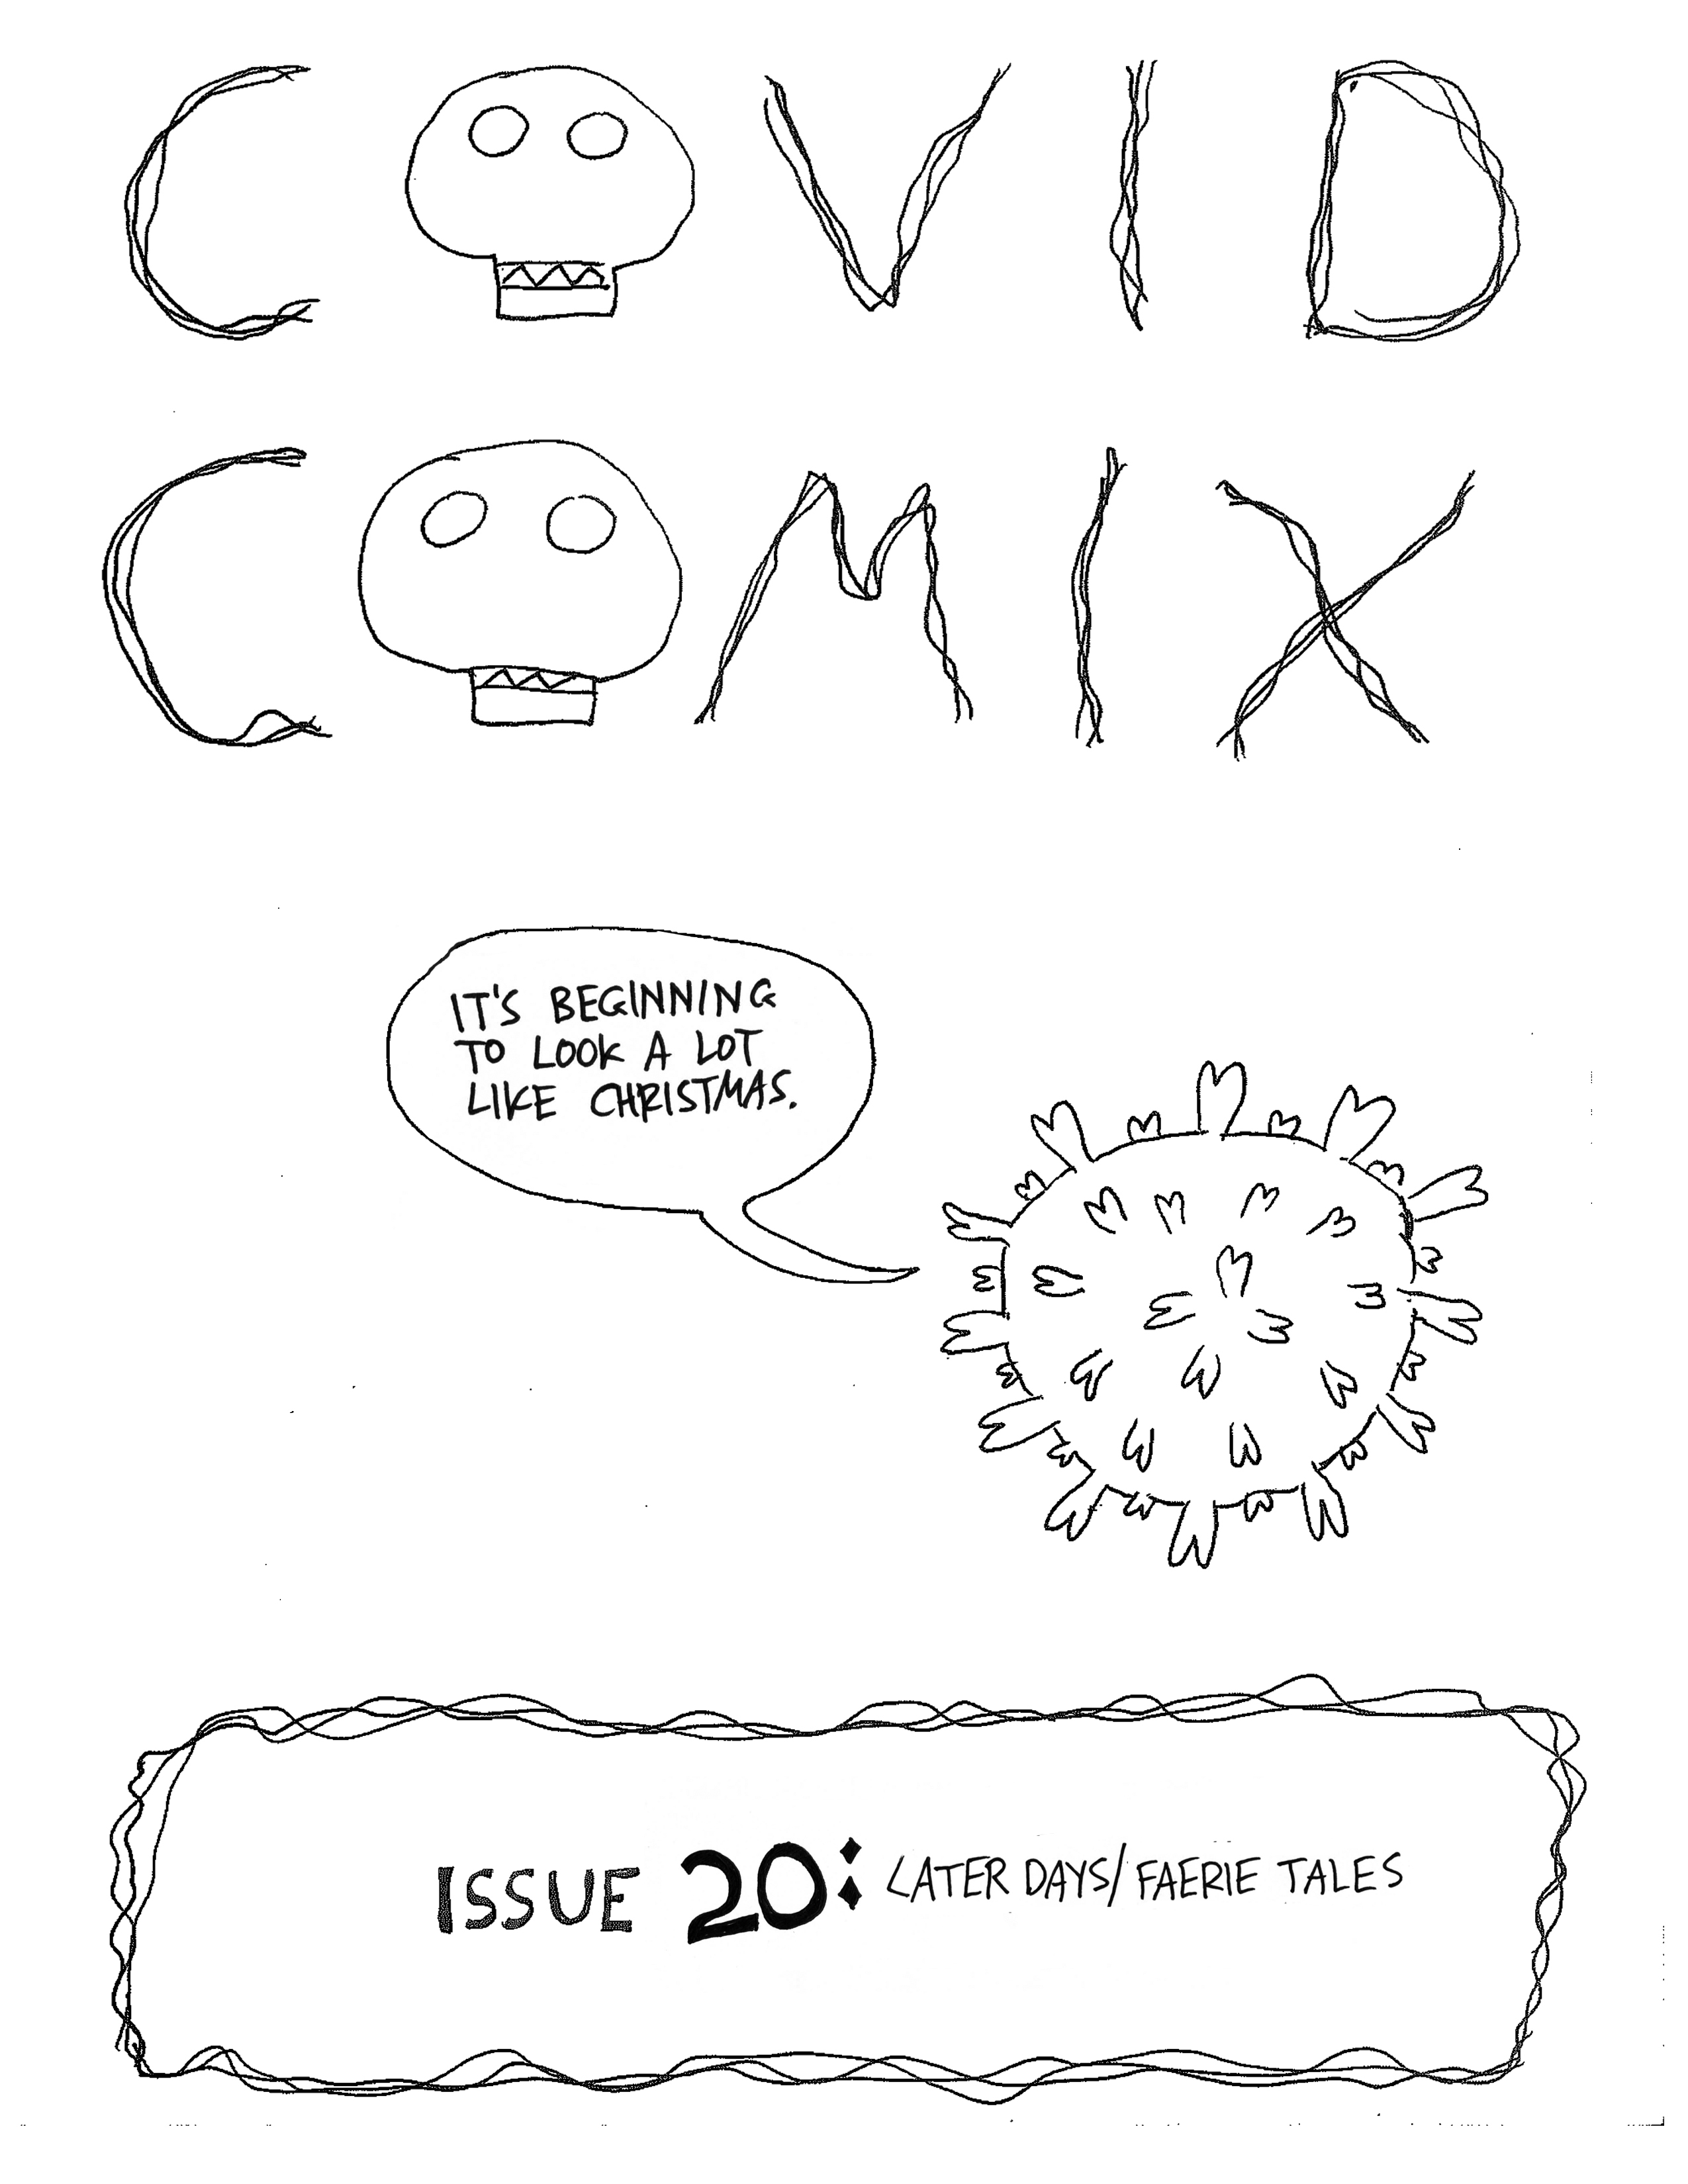 COVID
COMIX
IT'S BEGINNING
TO LOOK A LOT
LIKE CHRISTMAS.
ISSUE 20: LATER DAYS/FAERIE TALES